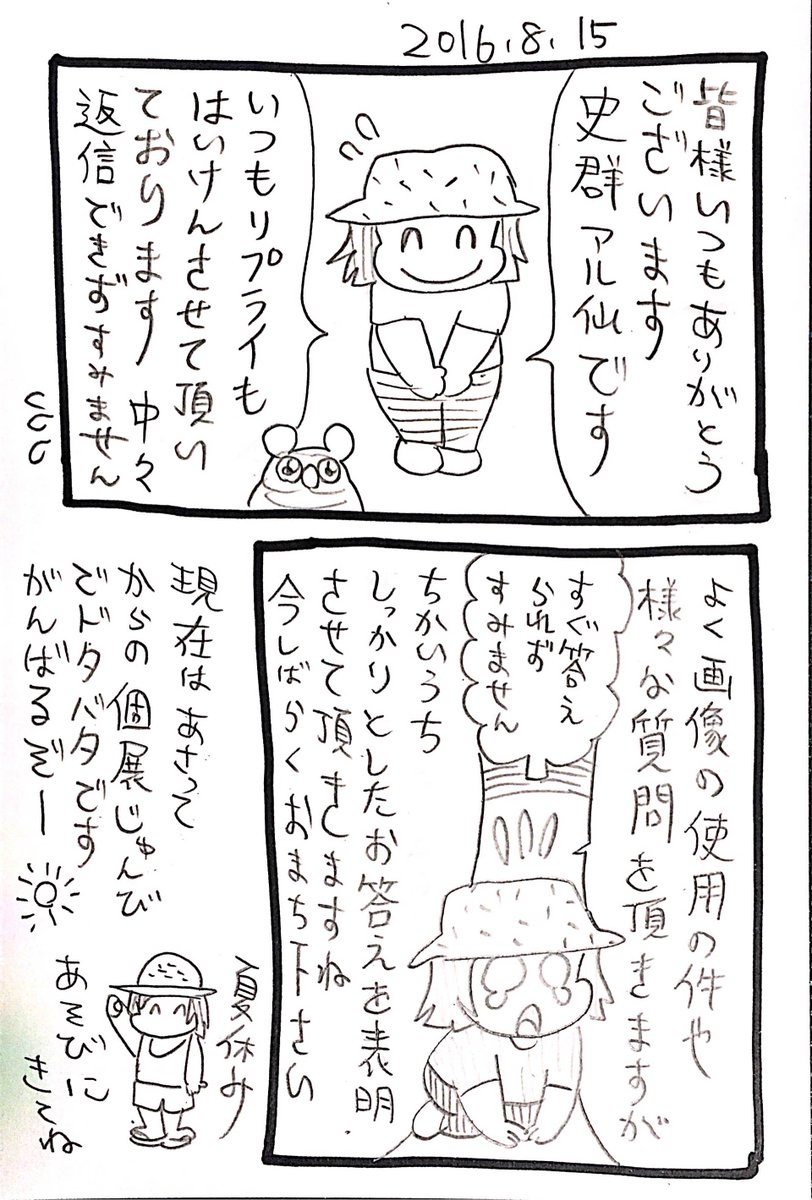 2016.8.15
皆様いつもありがとう
ございます
史群アル仙です
いつもリプライも
はいけんさせて頂い
ております 中々
返信できずすみません
よく画像の使用の件や
様々な質問を頂きますが
すぐ答え
られず
すみません
ちかいうち
しっかりとしたお答えを表明
させて頂きますね
今しばらくおまち下さい
現在はあさって
からの個展じゅんび
でドタバタです
がんばるぞー
夏休み
あそびに
きてね